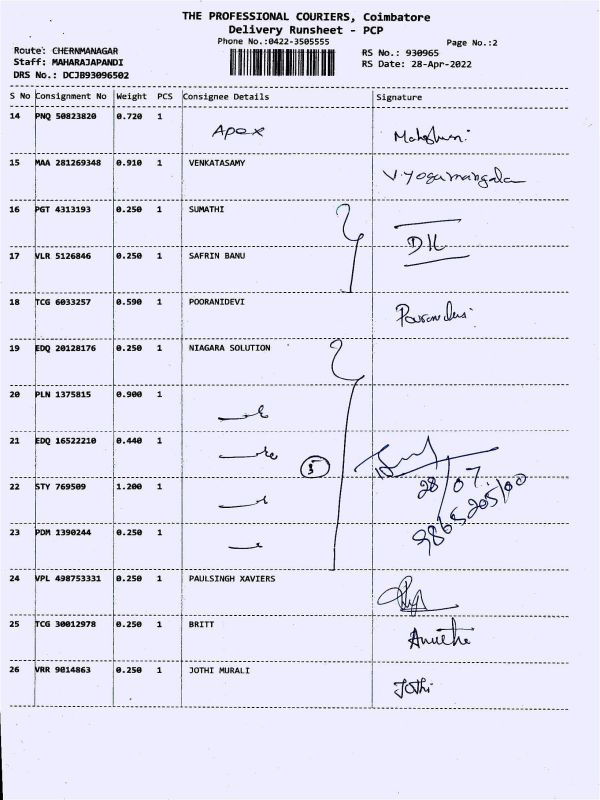 THE PROFESSIONAL COURIERS, Coimbatore
Delivery Runsheet - PCP
Phone No.:0422-3505555
Page No.:2
Route: CHERNMANAGAR
RS No.: 930965
Staff: MAHARAJAPANDI
RS Date: 28-Apr-2022
DRS No.: DCJB93096502
S No Consignment No Weight PCS Consignee Details Signature
14 PNQ 50823820 0.720 1 Apex
15 MAA 281269348 0.910 1 VENKATASAMY V.Yogamangala
16 PGT 4313193 0.250 1 SUMATHI
17 VLR 5126846 0.250 1 SAFRIN BANU
18 TCG 6033257 0.590 1 POORANIDEVI
19 EDQ 20128176 0.250 1 NIAGARA SOLUTION
20 PLN 1375815 0.900 1
21 EDQ 16522210 0.440 1
5
22 STY 769509 1.200 1
28/07
23 PDM 1390244 0.250 1
24 VPL 498753331 0.250 1 PAULSINGH XAVIERS
25 TCG 30012978 0.250 1 BRITT
26 VRR 9014863 0.250 1 JOTHI MURALI Jothi